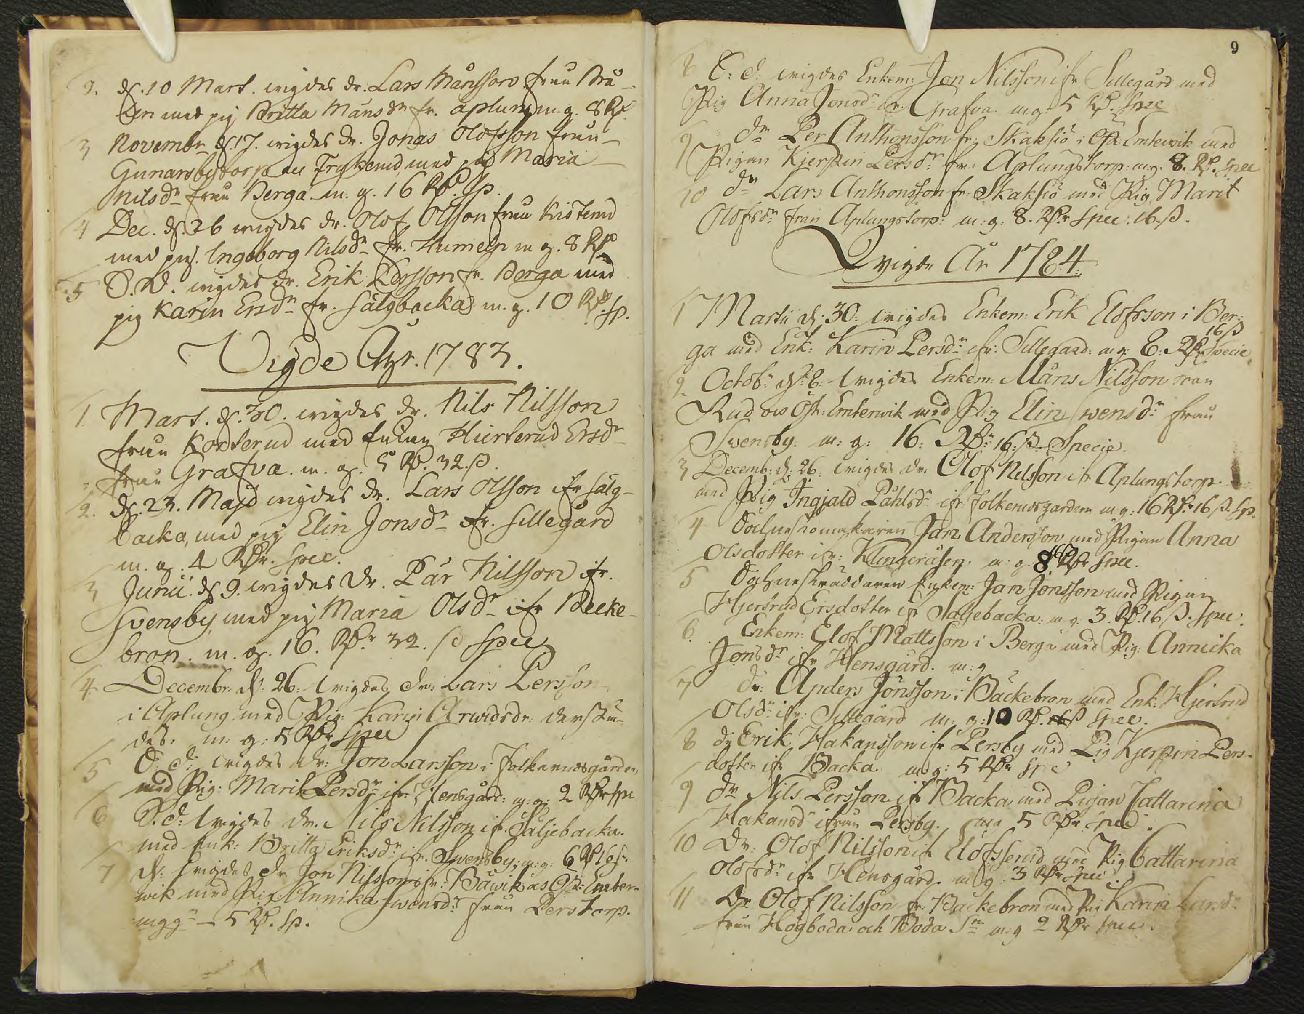 2. d. 10 Mart. wigdes dr. Lars Månsson från
med pig Britta Månsdr fr. Aplung m. g. 8 Rdr
3 Novembr d. 17. wigdes dr. Jonas Olofsson från
Gunarsbytorp au Frykerud, med pig Maria
Nilsdr från Berga m. g. 16 Rdr Sp.
4 Dec. d. 26 wigdes dr. Olof Olsson från
med pig. Ingeborg Nilsdr fr. m g. 8 Rdr
5 D. D. wigdes dr. Erik Persson fr. Berga med
pig Karin Ersdr fr. Sälgbacka m. g. 10 Rdr Sp.
Vigde Åhr. 1783.
1. Mart. d. 30. wigdes dr. Nils Nilsson
från med Enkan Hierterud Ersdr
från Grafva. m. g. 5 Rdr. 32 ß.
2. d. 23. Maji wigdes dr. Lars Olsson ifr Sälg-
backa, med pig Elin Jonsdr ifr. Sillegård
m. g. 4 Rdr. Spec
3 Junii d. 9. wigdes Dr. Pär Nilsson ifr.
Svensby, med pig Maria Olsdr ifr Becke-
bron. m. g. 16. Rdr 32. ß Spec
4 Decembr. d. 26. wigdes dr. Lars Persson
i Aplung med Pig. Karin Arwidsdr. därstä-
des. m. g. 5 Rdr Spec
5 D. d. wigdes dr. Jon Larsson i Folkarnesgården
med Pig. Marit Persdr ifr. Hensgård. m. g. 2 Rdr Spe
6 D. d. wigdes dr. Nils Nilsson if. Säljebacka
med Enk. Britta Eriksdr ifr. Svensby. m. g. 6 Rd 16 ß.
7 d. wigdes dr Jon Nilsson fr. Öst. Emter-
wik med Pig. Annika Swensdr från Perstorp.
m g - 5 Rdr. Sp.
9
8 E. d. wigdes Enkem. Jan Nilsson ifr Sillegård med
Pig Anna Jonsdr fr. Grafva m g 5 Rdr. Spec
9 dr Per Anthonsson fr. Skaksiö i Öst. Emterwik med
Pigan Kjerstin Larsdr fr. Aplungstorp. m g. 8. Rdr. Spec
10 dr Lars Anthonsson fr. Skaksiö med Pig. Marit
Olofsdr från Aplungstorp. m. g. 8. Rdr Spec. 16 ß.
Wigde År 1784.
1 Martii d. 30. wigdes Enkem. Erik Elofsson i Ber-
ga med Enk. Karin Persdr ifr. Sillegård. m g. 8. Rdr 16 ß Specie
2. Octobr d. 8. wigdes Enkem. Måns Nilsson
Öst. Emterwik med Pig Elin Swensdr från
Svensby. m. g. 16. Rdr 16. ß. Specie
3 Decemb. d. 26. wigdes dr. Olof Nilsson i Aplungstorp
med Pig Ingjald Påhlsdr ifr Folkernesgarden m g. 16 Rdr 16 ß. Sp.
4 Jan Andersson med Pigan Anna
Olsdotter ifr. m. g 8 Rdr Spec.
5 Enkem. Jan Jonsson med Pigan
Hjertrud Ersdotter if Säljebacka. m g. 3. Rdr 16 ß. Spec.
6. Enkem. Elof Mattsson i Berga med Pig. Annicka
Jonsdr ifr Hensgård. m. g
7 dr. Anders Jönsson i Bäckebron med Enk. Hjertrud
Olsdr ifr. Sillegård m. g. 10 Rdr. Spec.
8 dr Erik Hakansson ifr Persby med Pig Kjerstin Pers-
dotter if. Backa. m g. 5 Rdr Spe
9 dr Nils Persson if Backa med Pigan Cattarina
Hakansdr ifrån Persby m g 5 Rdr Spec.
10 Dr. Olof Nilsson if Elofsrud med Pig Cattarina
Olofsdr ifr Hensgård. m. g. 3 Rdr Spec
11 Dr Olof Nilsson fr. Backebron med Pig Karin Larsdr
från Högboda och Boda Sn m. g 2 Rdr Spec.